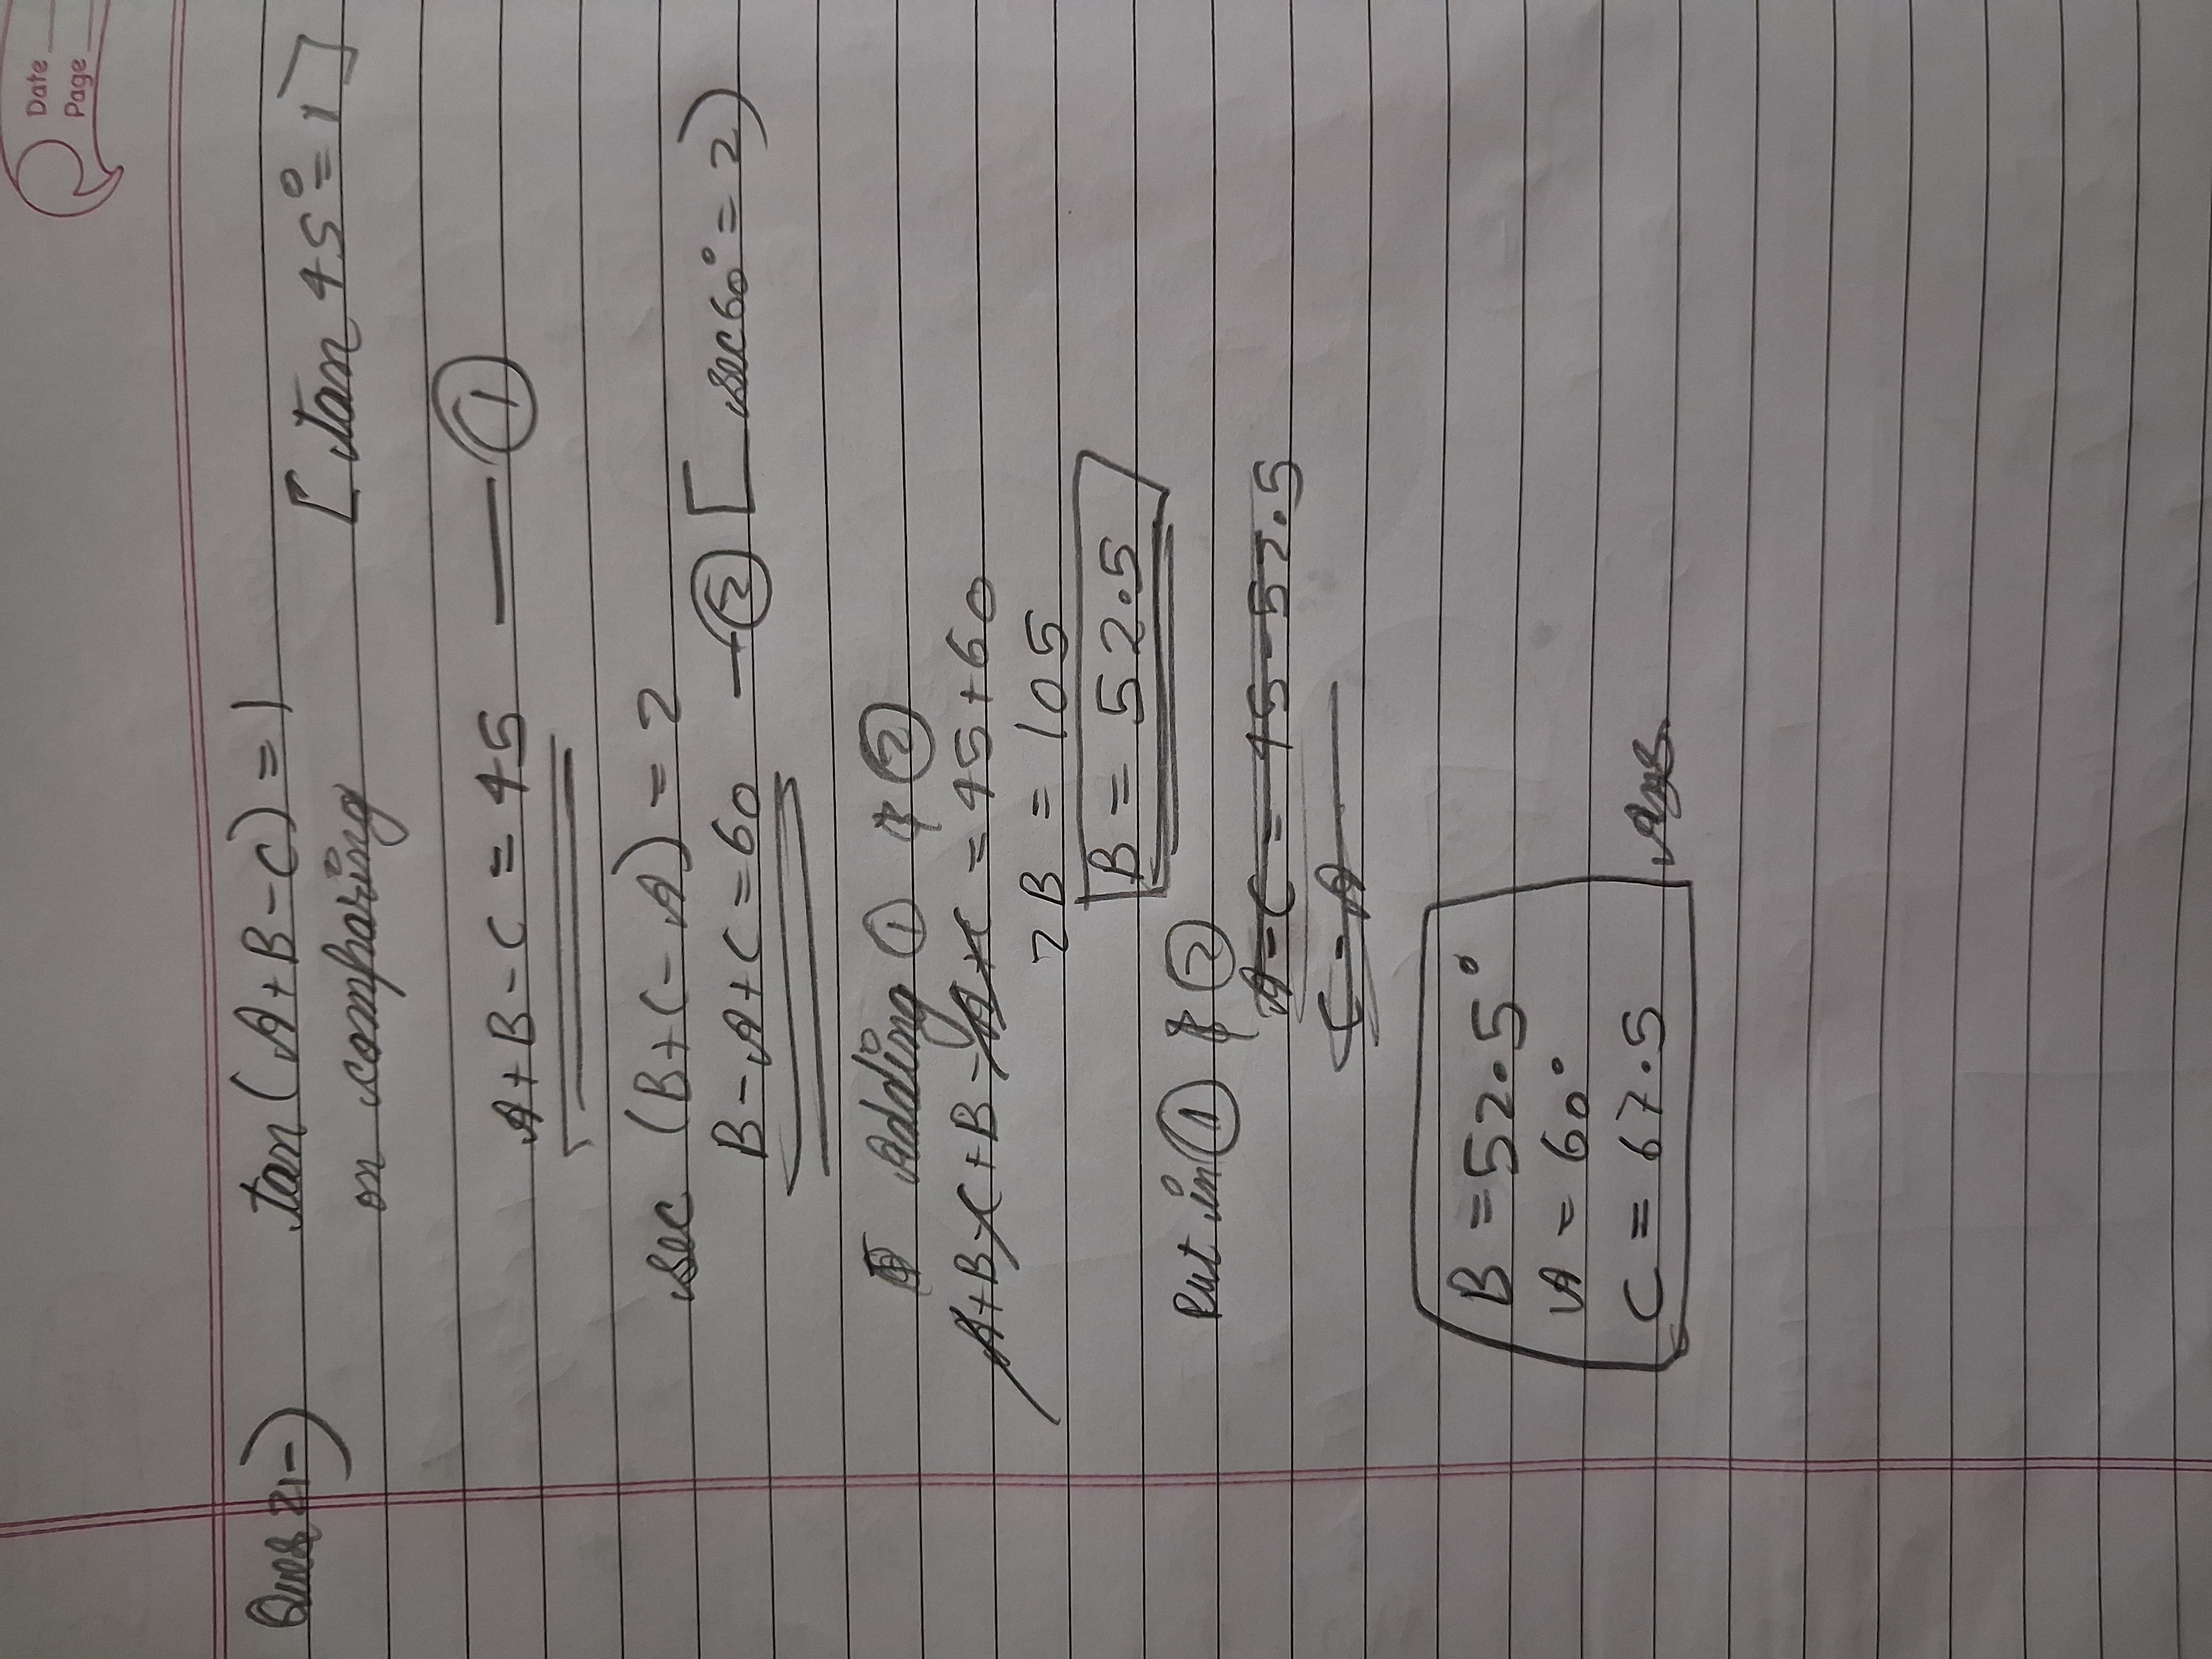 Date
Page
Ques 21-) tan (A+B-C) = 1
on comparing [tan 45° = 1]
A+B-C = 45 — ①
sec (B+C-A) = 2
B-A+C = 60 — ② [sec 60° = 2)
Adding ① & ②
A+B-C+B-A+C = 45+60
2B = 105
B = 52.5
Put in ① & ②
A-C = 45-52.5
C-A
B = 52.5°
A = 60°
C = 67.5 Ans